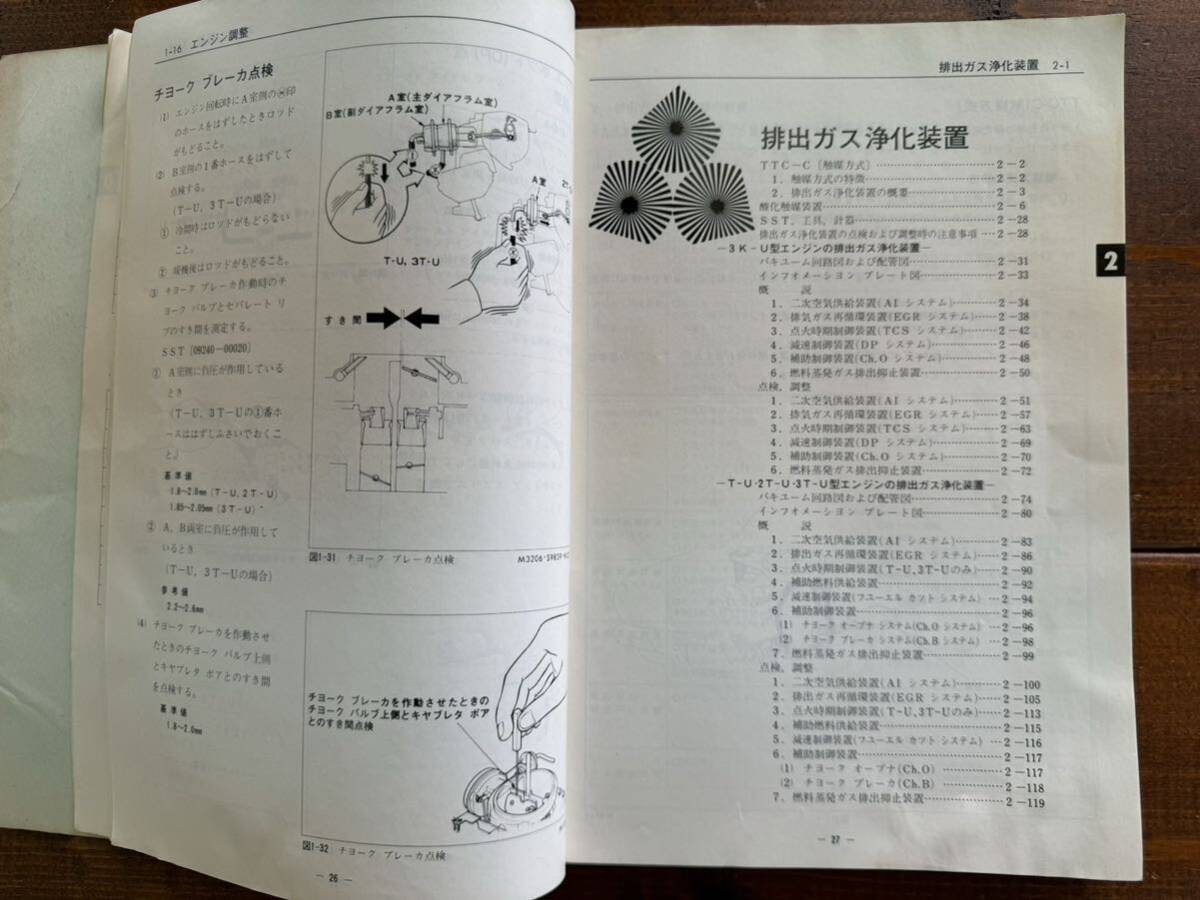 1-16 エンジン調整
チヨーク ブレーカ点検
(1) エンジン回転時にA室側の㊀印
のホースをはずしたときロッド
がもどること。
(2) B室側の1番ホースをはずして
点検する。
(T-U, 3T-Uの場合)
① 冷間時はロッドがもどらない
こと。
② 暖機後はロッドがもどること。
(3) チヨーク ブレーカ作動時のチ
ヨーク バルブとセパレート リ
ブのすき間を測定する。
SST〔09240-00020〕
① A室側に負圧が作用している
とき
(T-U, 3T-Uの①番ホ
ースははずしふさいでおくこ
と。)
基準値
1.8~2.0mm (T-U, 2T-U)
1.85~2.05mm (3T-U)
② A, B両室に負圧が作用して
いるとき
(T-U, 3T-Uの場合)
参考値
2.2~2.6mm
(4) チヨーク ブレーカを作動させ
たときのチヨーク バルブ上側
とキヤブレタ ボアとのすき間
を点検する。
基準値
1.8~2.0mm
A室(主ダイアフラム室)
B室(副ダイアフラム室)
A室
T-U, 3T-U
すき間
図1-31 チヨーク ブレーカ点検
チヨーク ブレーカを作動させたときの
チヨーク バルブ上側とキヤブレタ ボア
とのすき間点検
図1-32 チヨーク ブレーカ点検
— 26 —
排出ガス浄化装置 2-1
排出ガス浄化装置
TTC-C〔触媒方式〕……2-2
1. 触媒方式の特徴……2-2
2. 排出ガス浄化装置の概要……2-3
酸化触媒装置……2-6
SST, 工具, 計器……2-28
排出ガス浄化装置の点検および調整時の注意事項…2-28
—3K-U型エンジンの排出ガス浄化装置—
バキユーム回路図および配管図……2-31
インフオメーシヨン プレート図……2-33
概 説
1. 二次空気供給装置(AI システム)……2-34
2. 排気ガス再循環装置(EGR システム)……2-38
3. 点火時期制御装置(TCS システム)……2-42
4. 減速制御装置(DP システム)……2-46
5. 補助制御装置(Ch.O システム)……2-48
6. 燃料蒸発ガス排出抑止装置……2-50
点検, 調整
1. 二次空気供給装置(AI システム)……2-51
2. 排気ガス再循環装置(EGR システム)……2-57
3. 点火時期制御装置(TCS システム)……2-63
4. 減速制御装置(DP システム)……2-69
5. 補助制御装置(Ch.O システム)……2-70
6. 燃料蒸発ガス排出抑止装置……2-72
—T-U・2T-U・3T-U型エンジンの排出ガス浄化装置—
バキユーム回路図および配管図……2-74
インフオメーシヨン プレート図……2-80
概 説
1. 二次空気供給装置(AI システム)……2-83
2. 排出ガス再循環装置(EGR システム)……2-86
3. 点火時期制御装置(T-U, 3T-Uのみ)……2-90
4. 補助燃料供給装置……2-92
5. 減速制御装置(フユーエル カツト システム)…2-94
6. 補助制御装置……2-96
(1) チヨーク オープナ システム(Ch.O システム)…2-96
(2) チヨーク ブレーカ システム(Ch.B システム)…2-98
7. 燃料蒸発ガス排出抑止装置……2-99
点検, 調整
1. 二次空気供給装置(AI システム)……2-100
2. 排出ガス再循環装置(EGR システム)……2-105
3. 点火時期制御装置(T-U, 3T-Uのみ)……2-113
4. 補助燃料供給装置……2-115
5. 減速制御装置(フユーエル カツト システム)…2-116
6. 補助制御装置……2-117
(1) チヨーク オープナ(Ch.O)……2-117
(2) チヨーク ブレーカ(Ch.B)……2-118
7. 燃料蒸発ガス排出抑止装置……2-119
2
— 27 —